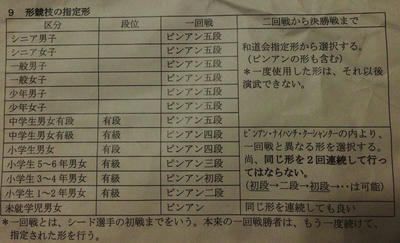 9 形競技の指定形
区分 段位 一回戦 二回戦から決勝戦まで
シニア男子 ピンアン五段
シニア女子 ピンアン五段
一般男子 ピンアン五段
一般女子 ピンアン五段
少年男子 ピンアン五段
少年女子 ピンアン五段
和道会指定形から選択する。
(ピンアンの形も含む)
*一度使用した形は、それ以後
演武できない。
中学生男女有段 有段 ピンアン五段
中学生男女有級 有級 ピンアン四段
小学生男女 有段 ピンアン四段
小学生5~6年男女 有級 ピンアン三段
小学生3~4年男女 有級 ピンアン初段
小学生1~2年男女 有級 ピンアン二段
ピンアン・ナイハンチ・クーシャンクーの内より、
一回戦と異なる形を選択する。
尚、同じ形を2回連続して行っ
てはならない。
(初段→二段→初段→‥は可能)
未就学児男女 ピンアン 同じ形を連続しても良い
*一回戦とは、シード選手の初戦までをいう。本来の一回戦勝者は、もう一度続けて、
指定された形を行う。